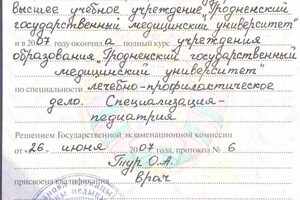 высшее учебное учреждение "Гродненский
государственный медицинский университет"
и в 2007 году окончила полный курс учреждения
образования "Гродненский государственный
медицинский университет
по специальности лечебно-профилактическое
дело. Специализация-
педиатрия
Решением Государственной экзаменационной комиссии
от «26» июня 2007 года, протокол № 6
Тур О.А.
присвоена квалификация врач